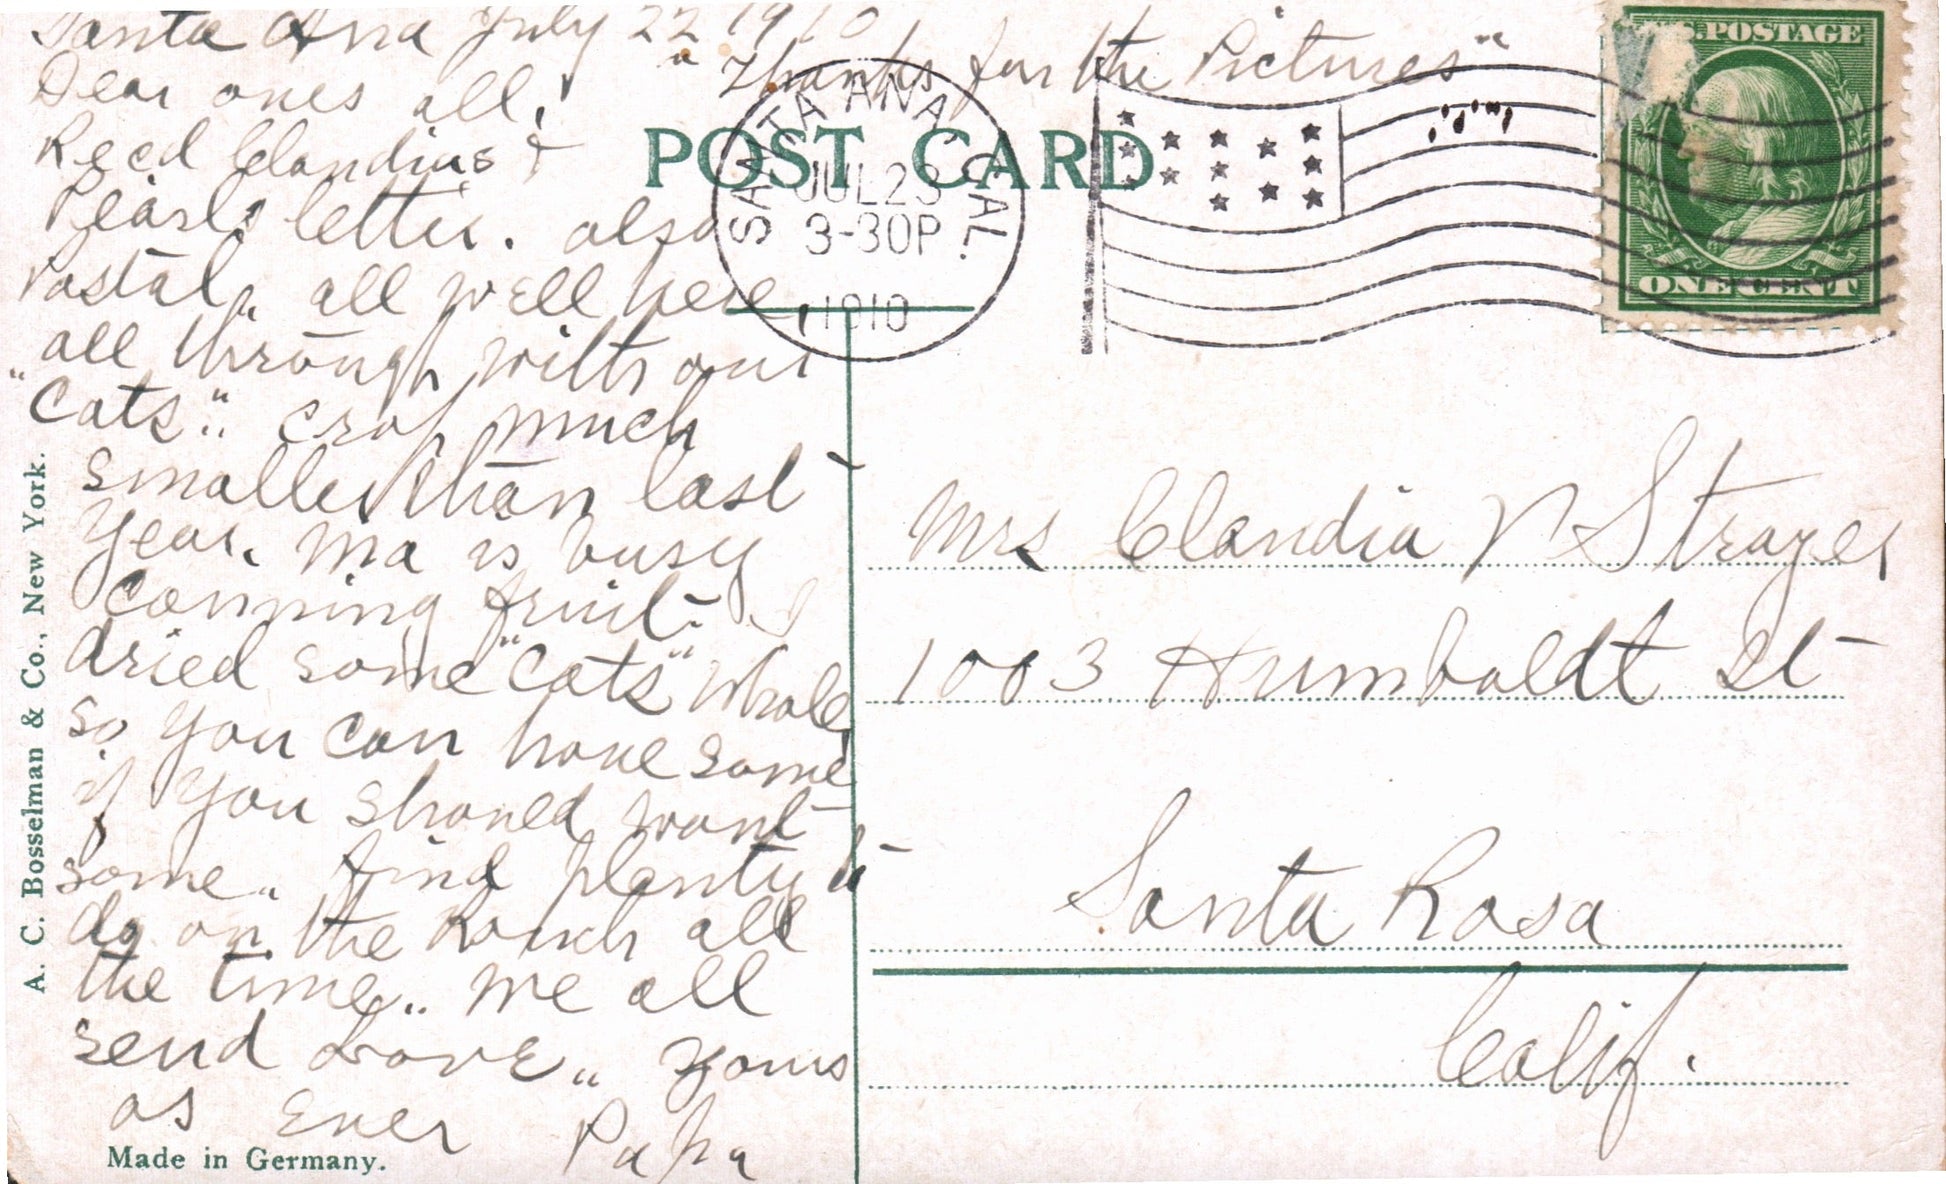 Santa Ana July 22 1910
"Thanks for the Pictures"
Dear ones all,
Recd Claudius &
Pearls letter. also
Postal. all well here
all through with our
"Cats". crop much
smaller than last
year. Ma is busy
Canning fruit- I
dried some "Cats" whole
so you can have some
if you should want
some. find plenty to
do on the Ranch all
the time.. We all
send Love.. Yours
as Ever Papa
POST CARD
SANTA ANA CAL.
JUL 23
3-30P
1910
U.S. POSTAGE
ONE CENT
Mrs Claudia V Strayer
1003 Humboldt St
Santa Rosa
Calif.
A. C. Bosselman & Co., New York.
Made in Germany.